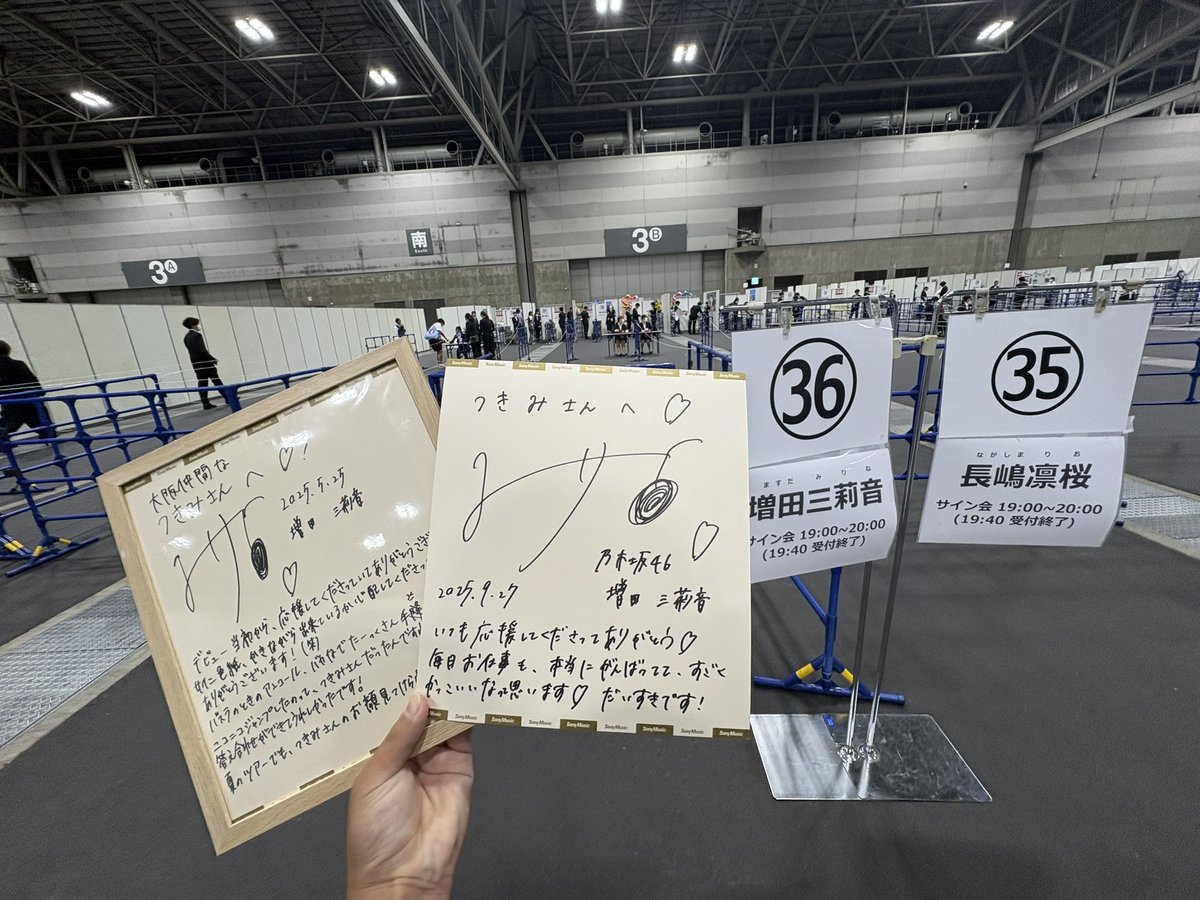 南
South
3A
3B
大阪仲間な
つきみさんへ♡!
2025.5.25
増田 三莉音
デビュー当初から、応援してくださっていてありがとうござ
サイン色紙、かきながら出来ているか心配してくださっ
ありがとうございます!(笑)
バスラのときのアンコール、バカなでたーっくさん手振
ニコニコジャンプしたのって、つきみさんだったんですね
答え合わせができてうれしかったです!
夏のツアーでも、つきみさんのお顔見つけら
つきみさんへ♡
みりね
乃木坂46
2025.9.27
増田 三莉音
いつも応援してくださってありがとう♡
毎日お仕事も、本当にがんばってて、すごく
かっこいいなって思います♡ だいすきです!
Sony Music
36
ますだ みりね
増田三莉音
サイン会 19:00~20:00
(19:40 受付終了)
35
ながしま りお
長嶋凛桜
サイン会 19:00~20:00
(19:40 受付終了)